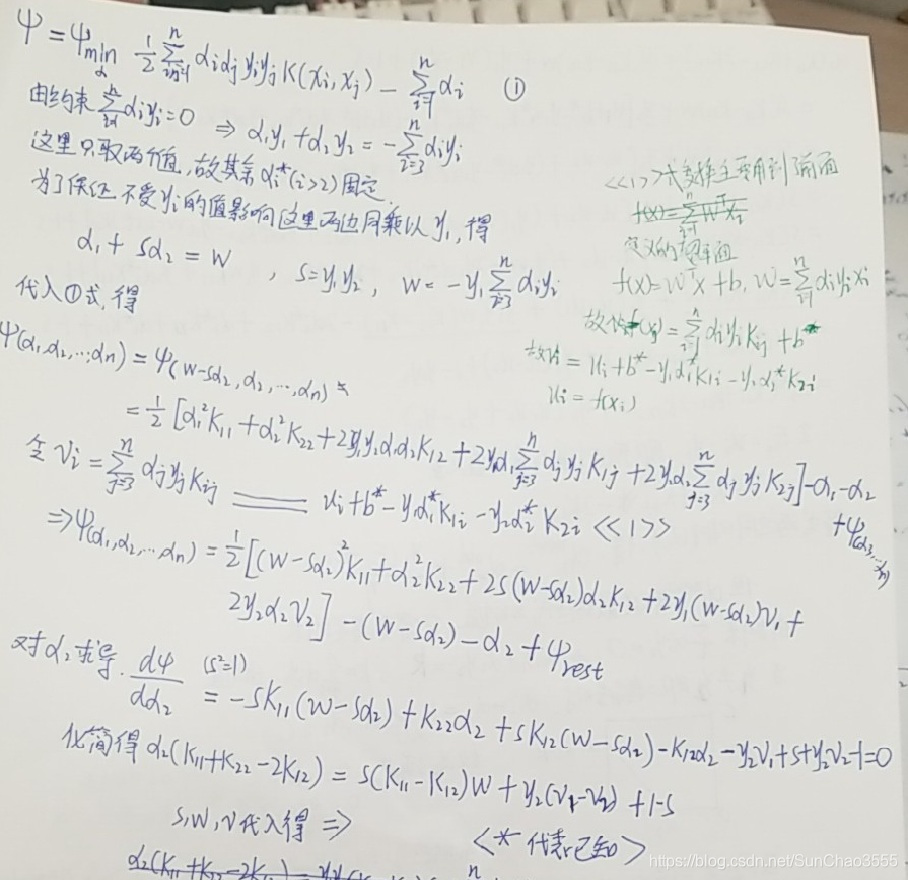 Ψ = Ψ min_α 1/2 Σ_{i,j=1}^n αiαj yiyj K(xi,xj) − Σ_{i=1}^n αi ①
由约束 Σ_{i=1}^n αiyi=0 ⇒ α1y1+α2y2 = −Σ_{i=3}^n αiyi
这里只取两个值,故其余 αi*(i>2)固定.
为了保证不受yi的值影响这里两边同乘以y1,得
α1 + sα2 = w , s=y1y2, w = −y1 Σ_{i=3}^n αiyi
代入①式,得
Ψ(α1,α2,…,αn) = Ψ(w−sα2, α2, …, αn) =
= 1/2 [α1²K11 + α2²K22 + 2y1y2α1α2K12 + 2y1α1 Σ_{j=3}^n αjyjK1j + 2y2α2 Σ_{j=3}^n αjyjK2j] −α1−α2
+Ψ(α3,…,αn)
令 vi = Σ_{j=3}^n αjyjKij ═══ ui+b*−y1α1*K1i−y2α2*K2i <<1>>
⇒Ψ(α1,α2,…,αn) = 1/2 [(w−sα2)²K11+α2²K22+2s(w−sα2)α2K12+2y1(w−sα2)v1+
2y2α2v2] −(w−sα2)−α2+Ψrest
对α2求导. dΨ/dα2 (s²=1) = −sK11(w−sα2)+K22α2+sK12(w−sα2)−K12α2−y2v1+s+y2v2−1=0
化简得 α2(K11+K22−2K12) = s(K11−K12)w + y2(v1−v2) +1−s
s,w,v代入得 ⇒
<* 代表已知>
α2(K11+K22−2K12)
<<1>>式变换主要用到了前面
f(x)=Σ_{i=1}^n WᵀXi
定义的
f(x)=WᵀX+b, W=Σ_{i=1}^n αiyixi
故 f(xj) = Σ_{i=1}^n αiyiKij + b*
故vi = ui+b*−y1α1*K1i−y2α2*K2i
ui = f(xi)
https://blog.csdn.net/SunChao3555